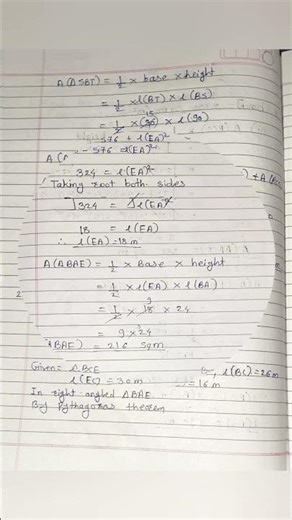 A(ΔSBT) = 1/2 × base × height
= 1/2 × l(BT) × l(BS)
= 1/2 × (30) × l(90)
15
576 + l(EA)²
A(
- 576 = l(EA)²
324 = l(EA)²
) + A(
Taking root both sides
√324 = √l(EA)²
18 = l(EA)
∴ l(EA) = 18 m
A(ΔBAE) = 1/2 × Base × height
= 1/2 × l(EA) × l(BA)
9
= 1/2 × 18 × 24
= 9 × 24
BAE) = 216 sqm
Given = ΔBCE
l(BC) = 26 m
l(EC) = 30 m
= 16 m
In right angled ΔBAE
By Pythagoras theorem